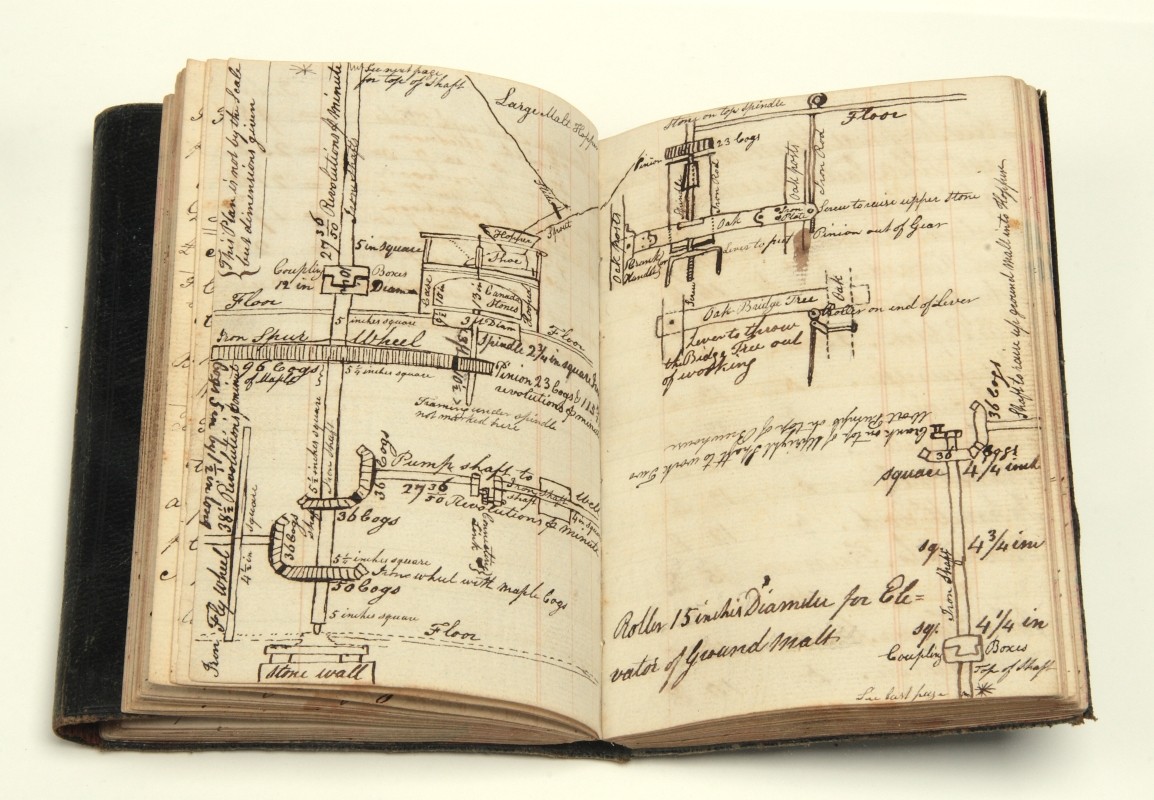 This Plan is not by the Scale
but dimensions given
27 36/50 Revolutions ℘ minute
Iron Shaft
See next page
for top of Shaft
Large Malt Hopper
5 in Square
Coupling Boxes
12 in Diam
Floor
Hopper
Shoe
Spout
Case
Canada
Stones
Floor
5 inches square
Iron Spur Wheel
96 Cogs
of Maple
5 1/4 inches square
Spindle 2 3/4 in square
Pinion 23 Cogs & 115
revolutions ℘ minute
Framing under spindle
not marked here
5 1/2 inches square
Iron Shaft
36 Cogs
Pump shaft to
27 36/50 Revolutions ℘ minute
Iron Shaft
4 in Square
Coupling
36 Cogs
36 Cogs
5 1/2 inches square
Iron wheel with maple Cogs
50 Cogs
5 inches square
Floor
Stone wall
Iron Fly Wheel
38 1/2 Revolutions ℘ minute
4 1/2 in square
Stone on top spindle
Floor
Pinion 23 Cogs
Spindle
Iron Rod
Oak posts
Iron Rod
Oak
Iron
Plate
Screw to raise upper Stone
Pinion out of Gear
Oak Posts
Handle for
lever to put
Screw
Oak Bridge Tree
Oak
Roller on end of Lever
Lever to throw
the Bridge Tree out
of working
Crank on top of Upright Shaft to work Two
Wort Pumps on top of Brewhouse
Shaft to raise up ground Malt into Hopper
36 Cogs
36 Cogs
square 4 1/4 inch
sq. 4 3/4 inch
Iron Shaft
Roller 15 inches Diameter for Ele=
vator of Ground Malt
sq. 4 1/4 in
Coupling Boxes
Top of Shaft
See last page